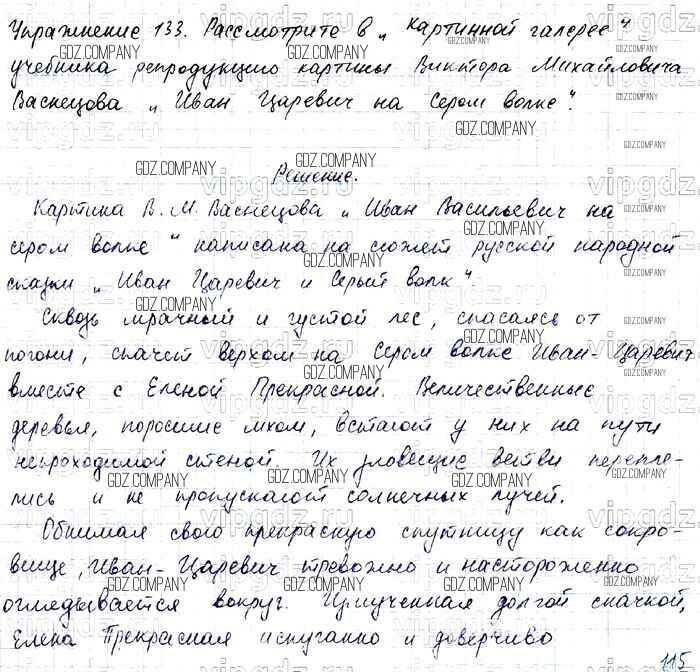 Упражнение 133. Рассмотрите в „ Картинной галерее"
учебника репродукцию картины Виктора Михайловича
Васнецова „ Иван Царевич на Сером волке".
Решение.
Картина В. М. Васнецова „ Иван Васильевич на
сером волке" написана на сюжет русской народной
сказки „ Иван Царевич и Серый волк".
Сквозь мрачный и густой лес, спасаясь от
погони, скачет верхом на Сером волке Иван-Царевич
вместе с Еленой Прекрасной. Величественные
деревья, поросшие мхом, встают у них на пути
непроходимой стеной. Их зловещие ветви перепле-
лись и не пропускают солнечных лучей.
Обнимая свою прекрасную спутницу как сокро-
вище, Иван-Царевич тревожно и настороженно
оглядывается вокруг. Измученная долгой скачкой,
Елена Прекрасная испуганно и доверчиво
115
GDZ.COMPANY
vipgdz.ru